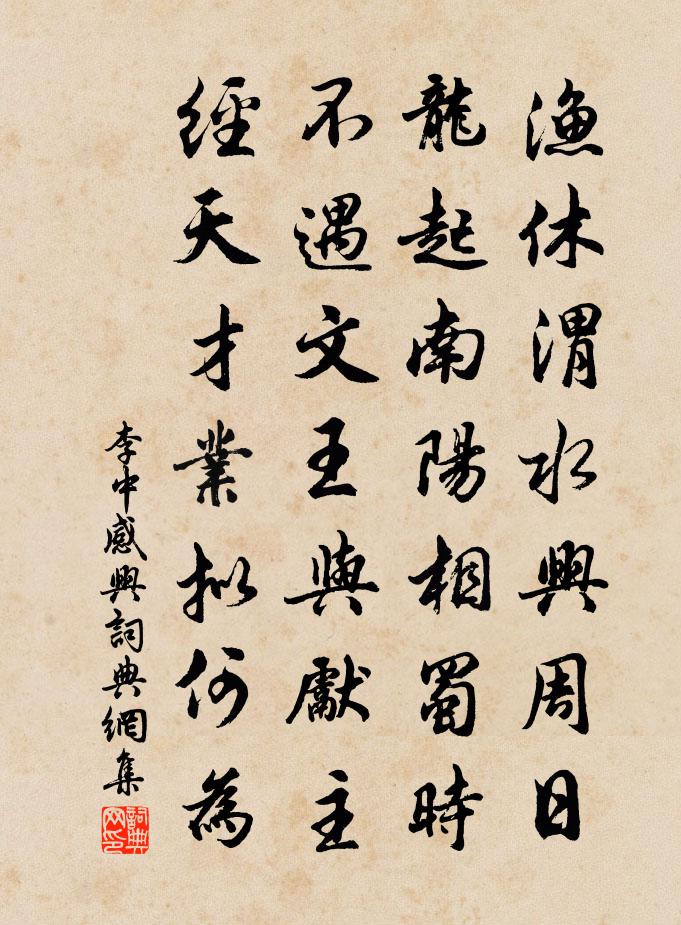 漁休渭水興周日
龍起南陽相蜀時
不遇文王與獻主
經天才業拟何為
李中感興詞典網集
詞典网印